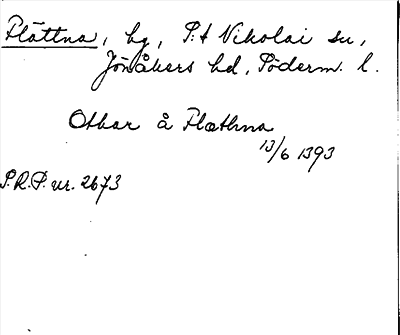 Slättna, by, S:t Nikolai sn,
Jönåkers hd, Söderm. l.
Otkar å Slæthna
13/6 1393
S.R.P. nr. 2673